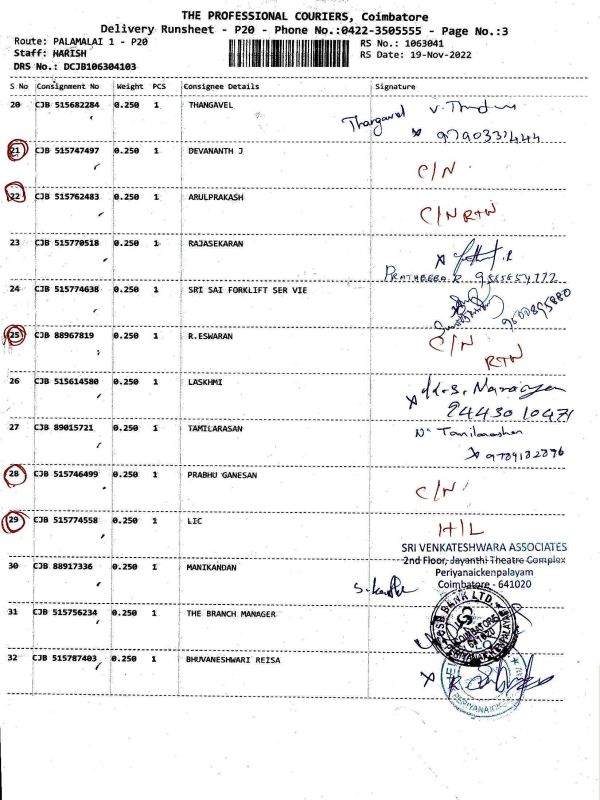 THE PROFESSIONAL COURIERS, Coimbatore
Delivery Runsheet - P20 - Phone No.:0422-3505555 - Page No.:3
Route: PALAMALAI 1 - P20 RS No.: 1063041
Staff: HARISH RS Date: 19-Nov-2022
DRS No.: DCJB106304103
S No Consignment No Weight PCS Consignee Details Signature
20 CJB 515682284 0.250 1 THANGAVEL
Thangavel
9790331444
21 CJB 515747497 0.250 1 DEVANANTH J
C/N
22 CJB 515762483 0.250 1 ARULPRAKASH
C/N RTN
23 CJB 515770518 0.250 1 RAJASEKARAN
24 CJB 515774638 0.250 1 SRI SAI FORKLIFT SER VIE
9500895880
25 CJB 88967819 0.250 1 R.ESWARAN
C/N
RTN
26 CJB 515614580 0.250 1 LASKHMI
9443010471
27 CJB 89015721 0.250 1 TAMILARASAN
9789182896
28 CJB 515746499 0.250 1 PRABHU GANESAN
C/N
29 CJB 515774558 0.250 1 LIC
H/L
SRI VENKATESHWARA ASSOCIATES
2nd Floor, Jayanthi Theatre Complex
Periyanaickenpalayam
Coimbatore - 641020
30 CJB 88917336 0.250 1 MANIKANDAN
31 CJB 515756234 0.250 1 THE BRANCH MANAGER
32 CJB 515787403 0.250 1 BHUVANESHWARI REISA